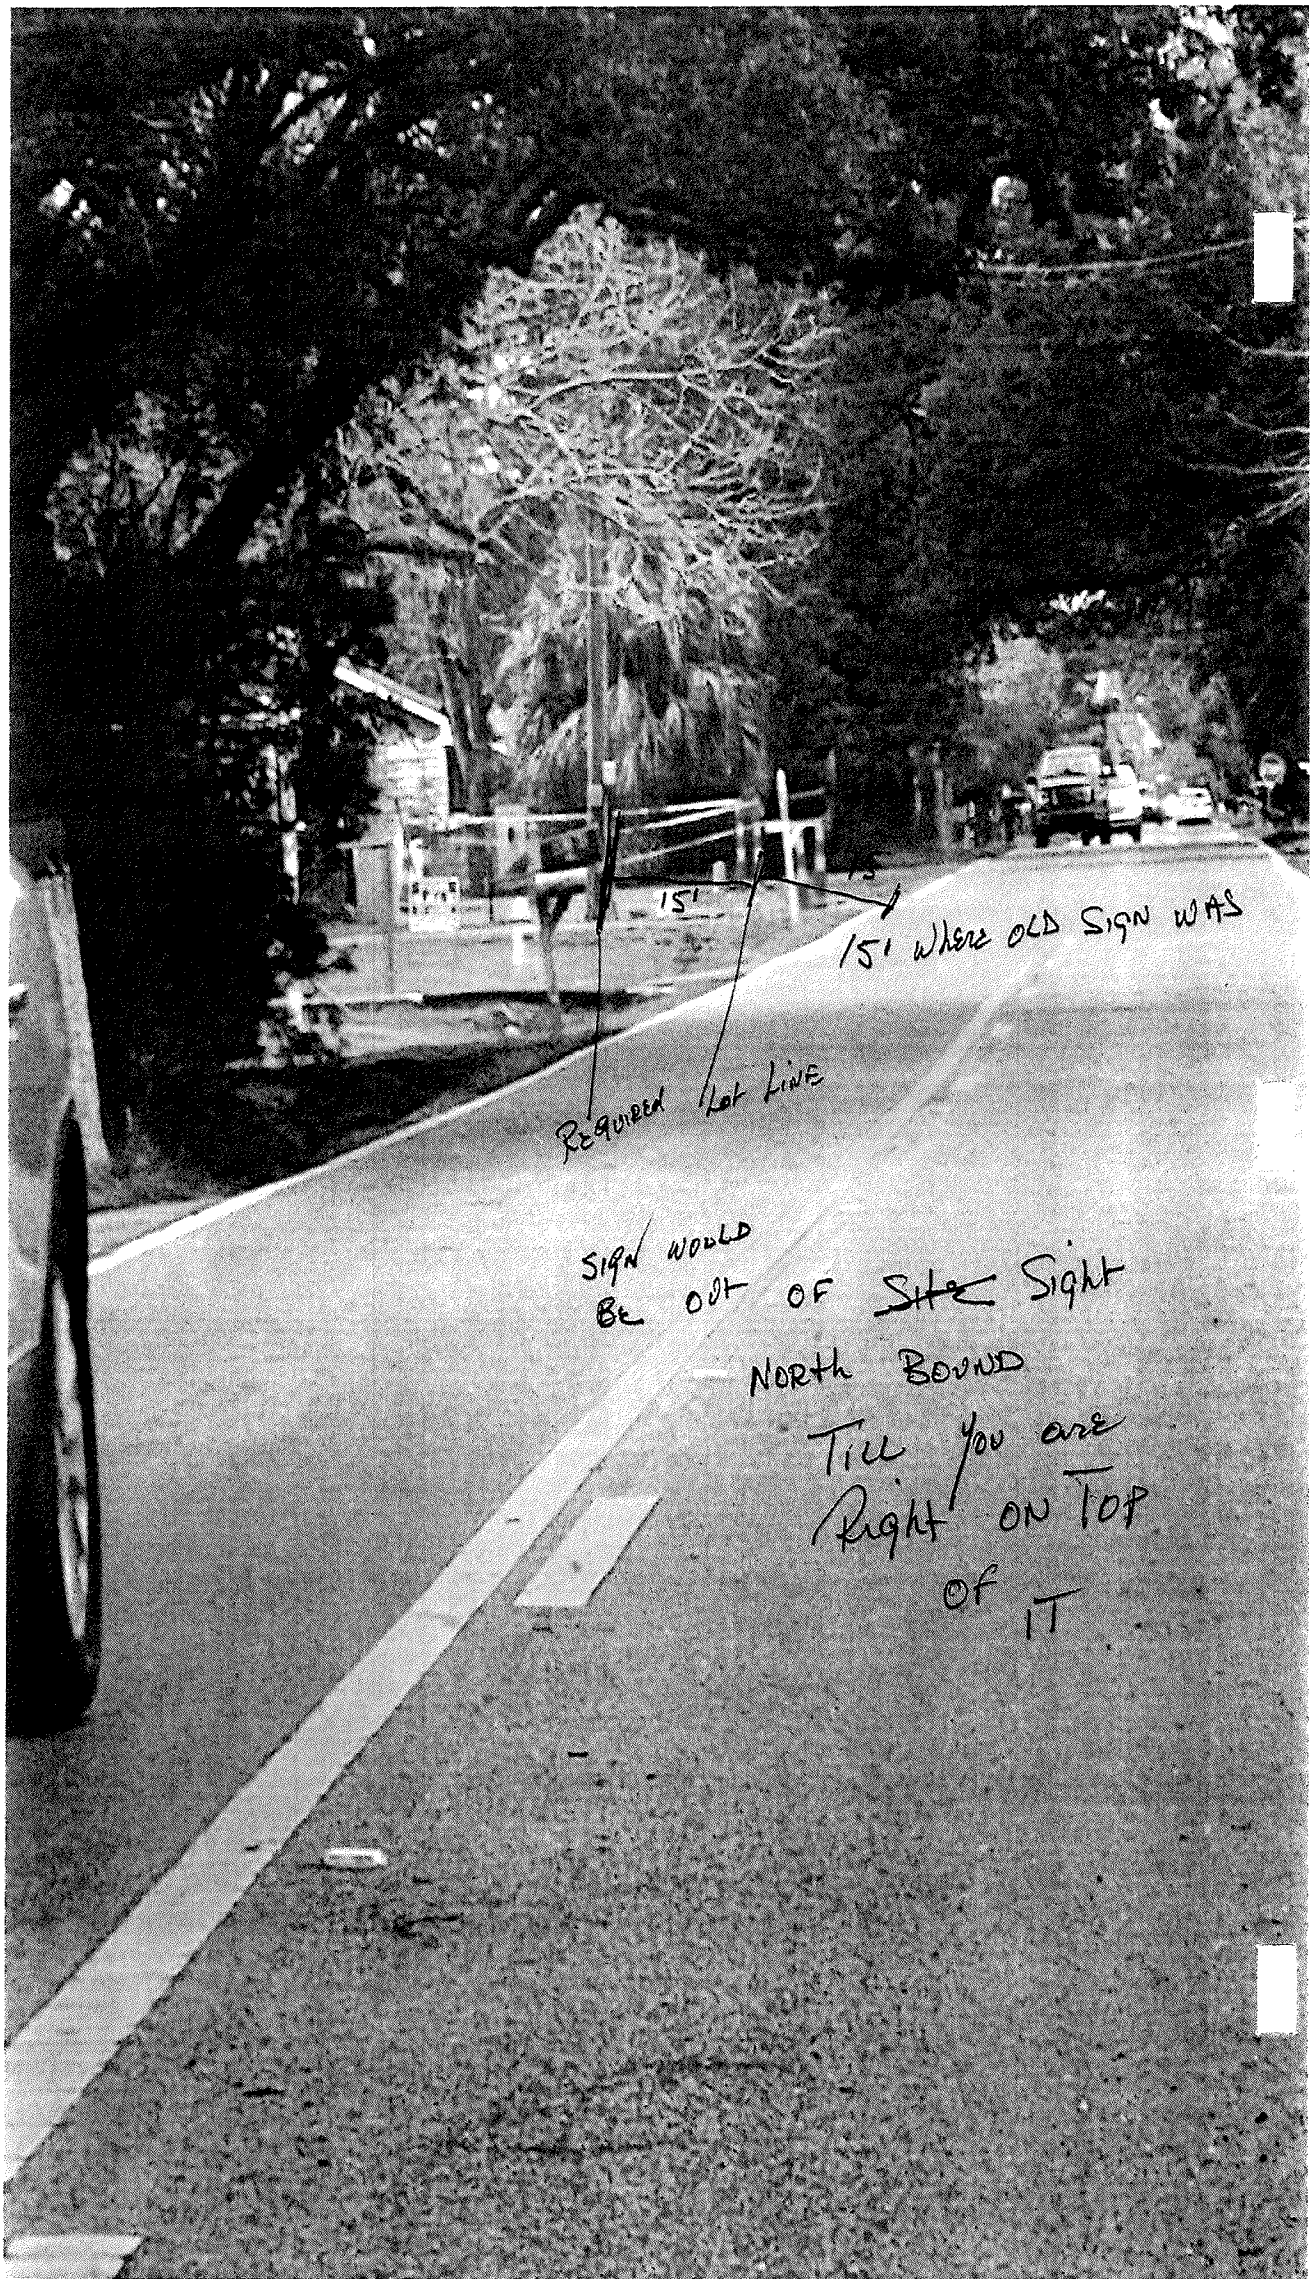 15'
15
15' WHERE OLD SIGN WAS
REQUIRED
Lot LINE
SIGN WOULD
BE OUT OF Site Sight
NORTH BOUND
TILL you are
Right ON TOP
OF IT